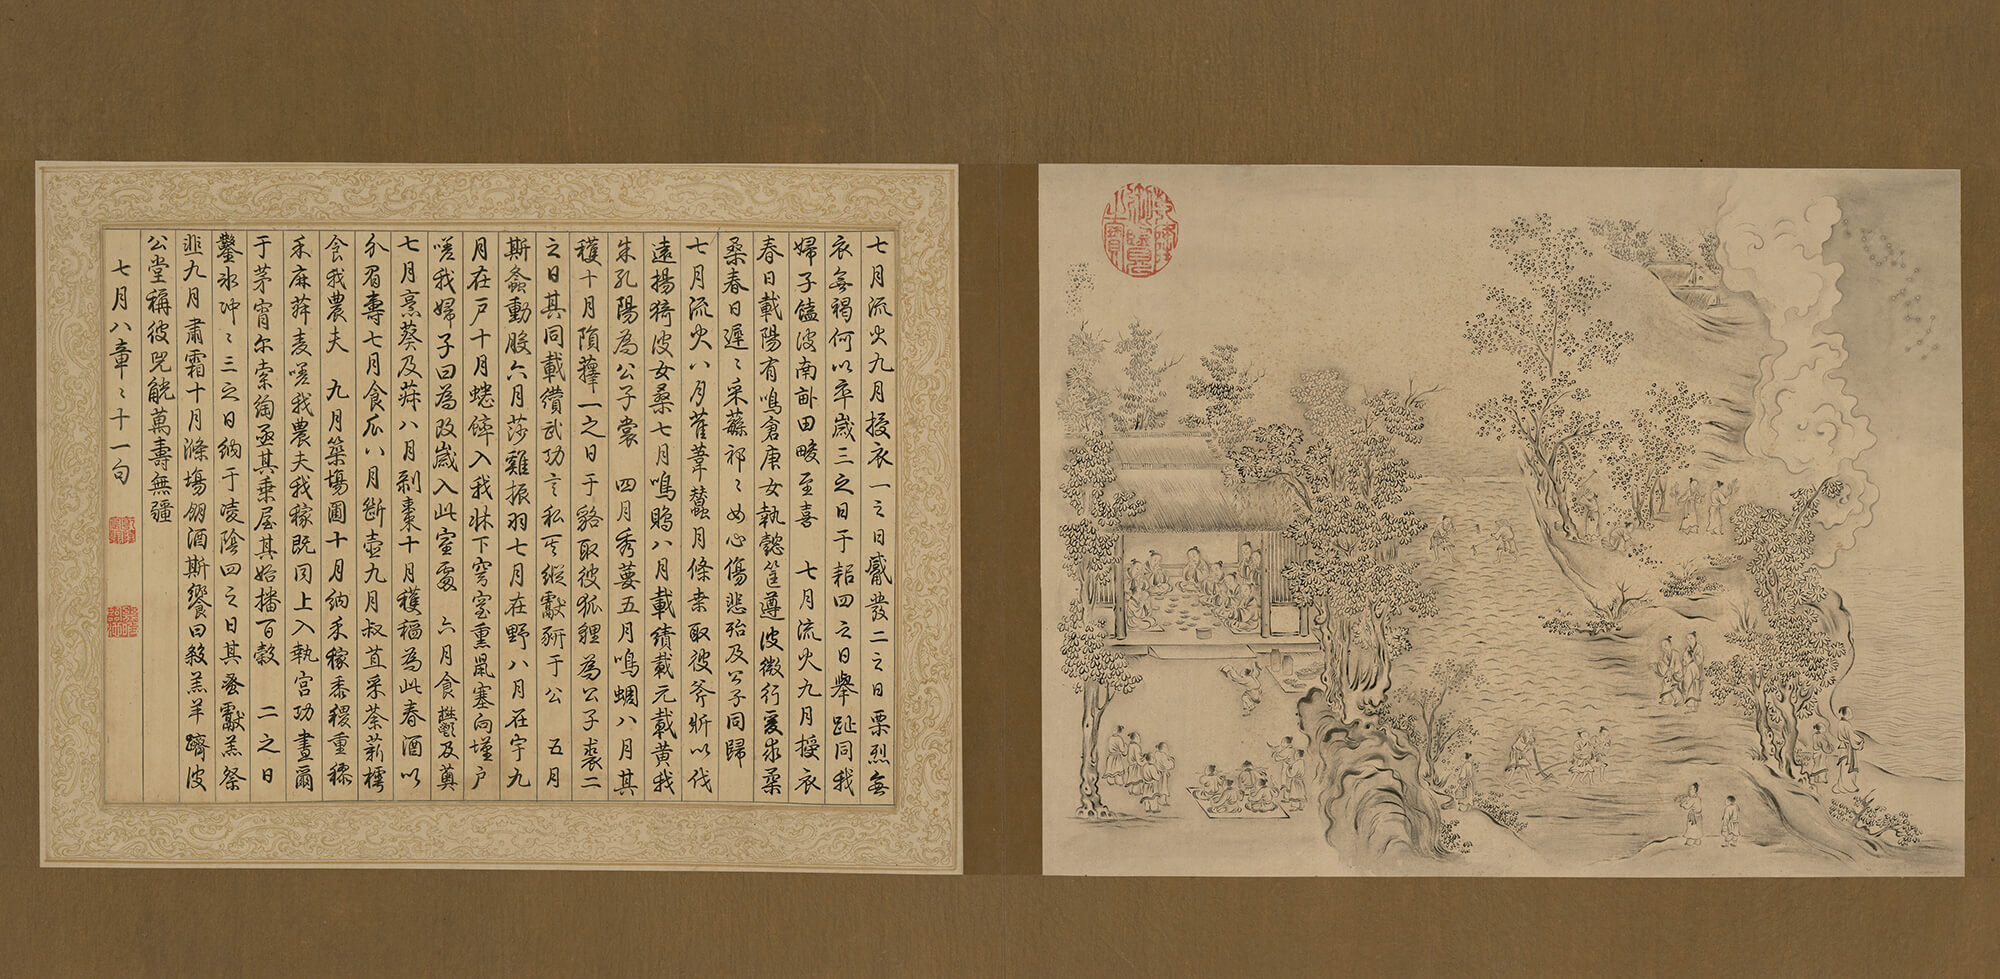 乾隆御覽之寶
七月流火九月授衣一之日觱發二之日栗烈無
衣無褐何以卒歲三之日于耜四之日舉趾同我
婦子饁彼南畝田畯至喜　七月流火九月授衣
春日載陽有鳴倉庚女執懿筐遵彼微行爰求柔
桑春日遲〻采蘩祁〻女心傷悲殆及公子同歸
七月流火八月萑葦蠶月條桑取彼斧斨以伐
遠揚猗彼女桑七月鳴鵙八月載績載玄載黃我
朱孔陽為公子裳　四月秀葽五月鳴蜩八月其
穫十月隕蘀一之日于貉取彼狐貍為公子裘二
之日其同載纘武功言私其豵獻豜于公　五月
斯螽動股六月莎雞振羽七月在野八月在宇九
月在戶十月蟋蟀入我牀下穹窒熏鼠塞向墐戶
嗟我婦子曰為改歲入此室處　六月食鬱及薁
七月烹葵及菽八月剝棗十月穫稻為此春酒以
介眉壽七月食瓜八月斷壺九月叔苴采荼薪樗
食我農夫　九月築場圃十月納禾稼黍稷重穋
禾麻菽麥嗟我農夫我稼既同上入執宮功晝爾
于茅宵尔索綯亟其乘屋其始播百穀　二之日
鑿冰沖〻三之日納于凌陰四之日其蚤獻羔祭
韭九月肅霜十月滌場朋酒斯饗曰殺羔羊躋彼
公堂稱彼兕觥萬壽無疆
七月八章〻十一句